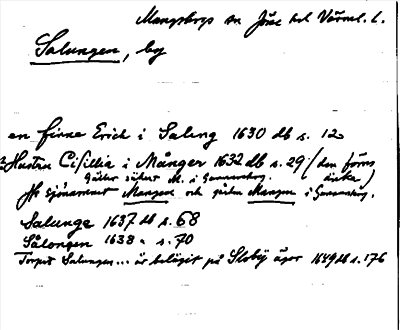 Mangskogs sn Jösse hd Värml. l.
Salungen, by
en finne Erich i Salung 1630 db s. 12
Hustru Cisillia i Månger 1632 db s. 29 (den förras
Gäller säkert M. i Gunnarskog. änka)
Jfr sjönamnet Mangen och gården Mangen i Gunnarskog.
Salunge 1637 db s. 68
Sålongen 1638 " s. 70
Torpet Salungen... är belägit på Sloby ägor 1689 db s. 176